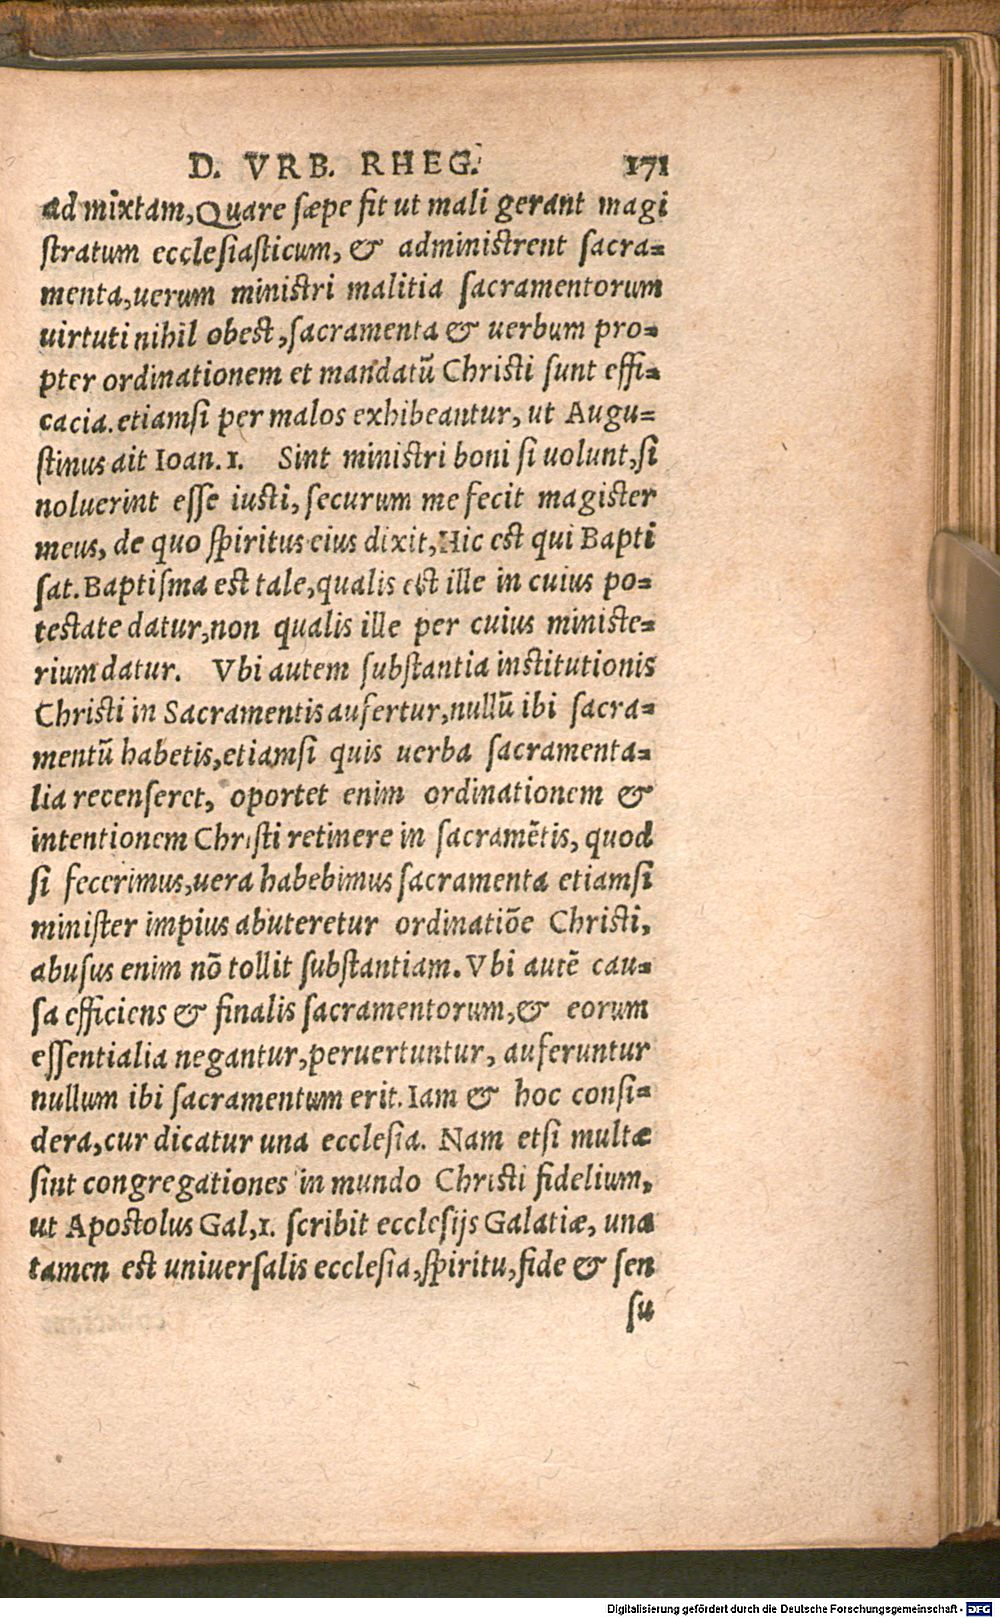 D. VRB. RHEG. 171
admixtam, Quare sæpe fit ut mali gerant magi
stratum ecclesiasticum, & administrent sacra=
menta, uerum ministri malitia sacramentorum
uirtuti nihil obest, sacramenta & uerbum pro=
pter ordinationem et mandatū Christi sunt effi=
cacia. etiamsi per malos exhibeantur, ut Augu=
stinus ait Ioan. 1. Sint ministri boni si uolunt, si
noluerint esse iusti, securum me fecit magister
meus, de quo spiritus eius dixit, Hic est qui Bapti
sat. Baptisma est tale, qualis est ille in cuius po=
testate datur, non qualis ille per cuius ministe=
rium datur. Vbi autem substantia institutionis
Christi in Sacramentis aufertur, nullū ibi sacra=
mentū habetis, etiamsi quis uerba sacramenta=
lia recenseret, oportet enim ordinationem &
intentionem Christi retinere in sacramētis, quod
si fecerimus, uera habebimus sacramenta etiamsi
minister impius abuteretur ordinatiōe Christi,
abusus enim nō tollit substantiam. Vbi autē cau=
sa efficiens & finalis sacramentorum, & eorum
essentialia negantur, peruertuntur, auferuntur
nullum ibi sacramentum erit. Iam & hoc consi=
dera, cur dicatur una ecclesia. Nam etsi multæ
sint congregationes in mundo Christi fidelium,
ut Apostolus Gal, 1. scribit ecclesijs Galatiæ, una
tamen est uniuersalis ecclesia, spiritu, fide & sen
su
Digitalisierung gefördert durch die Deutsche Forschungsgemeinschaft - DFG